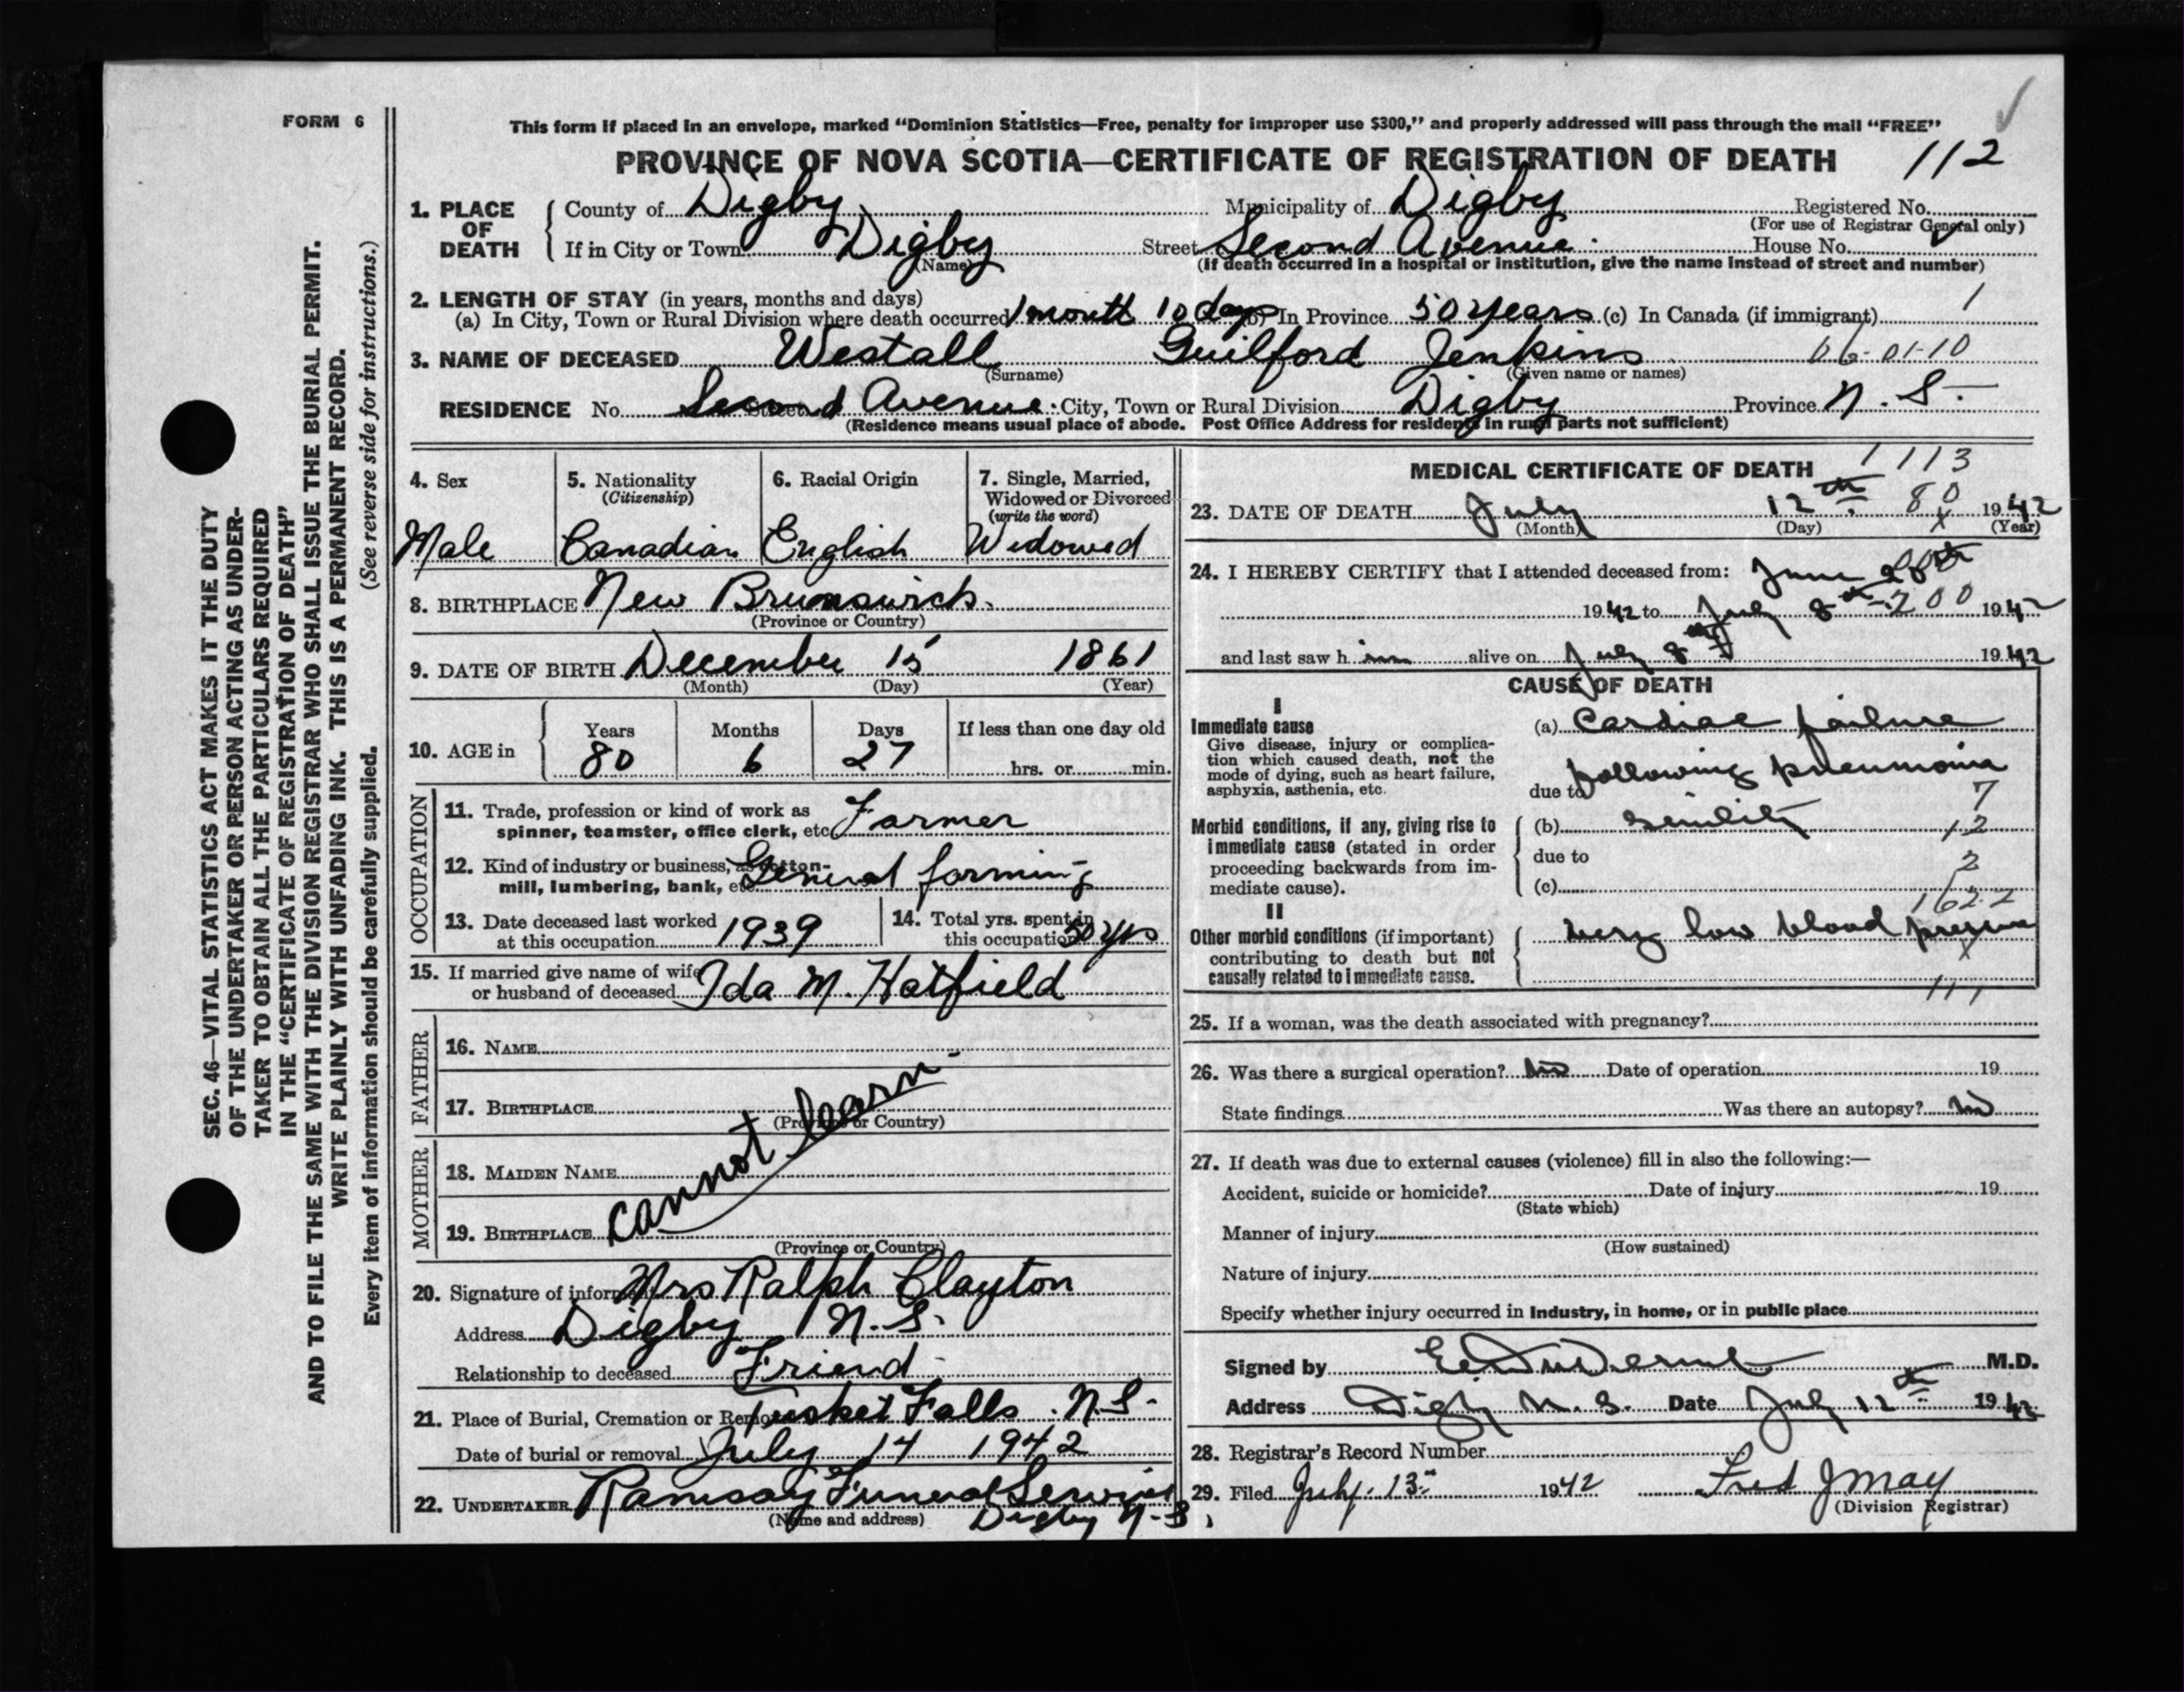 FORM 6
This form if placed in an envelope, marked “Dominion Statistics—Free, penalty for improper use $300,” and properly addressed will pass through the mail “FREE”
PROVINCE OF NOVA SCOTIA—CERTIFICATE OF REGISTRATION OF DEATH 112
1. PLACE OF DEATH
County of Digby Municipality of Digby Registered No.
(For use of Registrar General only)
If in City or Town Digby Street Second Avenue House No.
(Name) (If death occurred in a hospital or institution, give the name instead of street and number)
2. LENGTH OF STAY (in years, months and days)
(a) In City, Town or Rural Division where death occurred 1 month 10 days (b) In Province 50 years (c) In Canada (if immigrant) 1
3. NAME OF DECEASED Westall Guilford Jenkins 06-01-10
(Surname) (Given name or names)
RESIDENCE No. Second Avenue Street City, Town or Rural Division Digby Province N.S.
(Residence means usual place of abode. Post Office Address for residents in rural parts not sufficient)
4. Sex
Male
5. Nationality
(Citizenship)
Canadian
6. Racial Origin
English
7. Single, Married,
Widowed or Divorced
(write the word)
Widowed
8. BIRTHPLACE New Brunswick
(Province or Country)
9. DATE OF BIRTH December 15 1861
(Month) (Day) (Year)
10. AGE in
Years Months Days If less than one day old
80 6 27 hrs. or min.
OCCUPATION
11. Trade, profession or kind of work as
spinner, teamster, office clerk, etc. Farmer
12. Kind of industry or business, as cotton-
mill, lumbering, bank, etc. General farming
13. Date deceased last worked
at this occupation 1939
14. Total yrs. spent in
this occupation 50 yrs
15. If married give name of wife
or husband of deceased Ida M. Hatfield
FATHER
16. NAME
17. BIRTHPLACE
(Province or Country)
MOTHER
18. MAIDEN NAME
19. BIRTHPLACE
(Province or Country)
cannot learn
20. Signature of informant Mrs Ralph Clayton
Address Digby N.S.
Relationship to deceased Friend
21. Place of Burial, Cremation or Removal Tusket Falls N.S.
Date of burial or removal July 14 1942
22. UNDERTAKER Ramsay Funeral Service
(Name and address) Digby N.S.
MEDICAL CERTIFICATE OF DEATH 1113
23. DATE OF DEATH July 12th 80 1942
(Month) (Day) (Year)
24. I HEREBY CERTIFY that I attended deceased from: June
1942 to July 8th 200 1942
and last saw him alive on July 8th 1942
CAUSE OF DEATH
I
Immediate cause
Give disease, injury or complica-
tion which caused death, not the
mode of dying, such as heart failure,
asphyxia, asthenia, etc.
(a) Cardiac failure
due to following pneumonia
7
Morbid conditions, if any, giving rise to
immediate cause (stated in order
proceeding backwards from im-
mediate cause).
(b) senility 12
due to 2
(c)
1622
II
Other morbid conditions (if important)
contributing to death but not
causally related to immediate cause.
very low blood pressure
X
111
25. If a woman, was the death associated with pregnancy?
26. Was there a surgical operation? no Date of operation 19
State findings Was there an autopsy? no
27. If death was due to external causes (violence) fill in also the following:—
Accident, suicide or homicide? Date of injury 19
(State which)
Manner of injury
(How sustained)
Nature of injury
Specify whether injury occurred in industry, in home, or in public place
Signed by M.D.
Address Digby N.S. Date July 12th 1942
28. Registrar's Record Number
29. Filed July 13th 1942 Fred J May
(Division Registrar)
SEC. 46—VITAL STATISTICS ACT MAKES IT THE DUTY
OF THE UNDERTAKER OR PERSON ACTING AS UNDER-
TAKER TO OBTAIN ALL THE PARTICULARS REQUIRED
IN THE “CERTIFICATE OF REGISTRATION OF DEATH”
AND TO FILE THE SAME WITH THE DIVISION REGISTRAR WHO SHALL ISSUE THE BURIAL PERMIT.
WRITE PLAINLY WITH UNFADING INK. THIS IS A PERMANENT RECORD.
Every item of information should be carefully supplied. (See reverse side for instructions.)